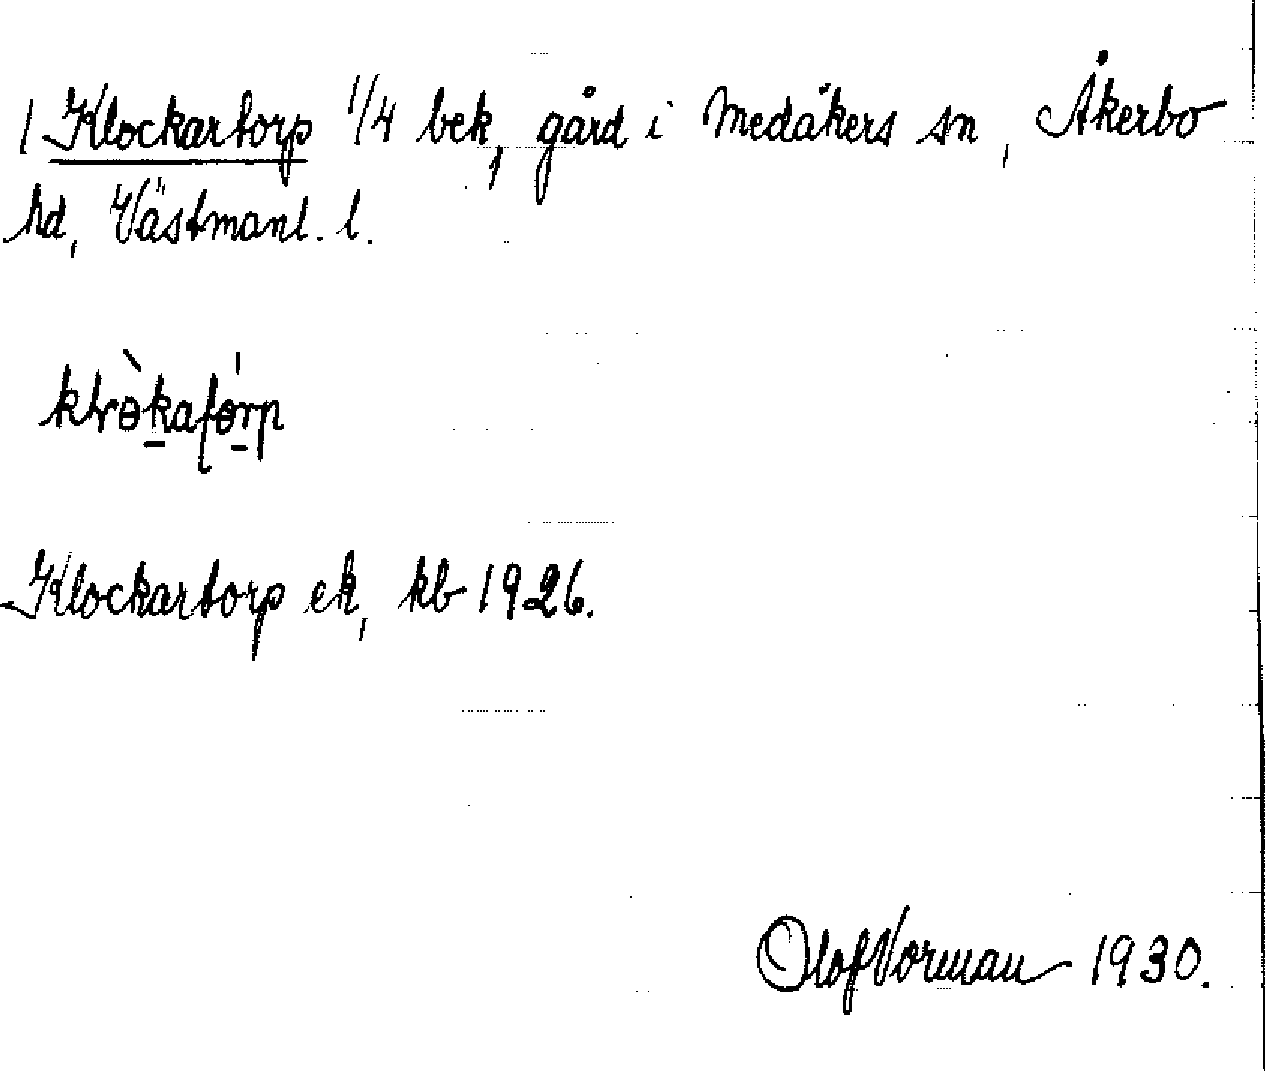 1 Klockartorp 1/4 bek, gård i Medåkers sn, Åkerbo
hd, Västmanl. l.
Klockartorp ek, kb 1926.
Olof Vorman 1930.